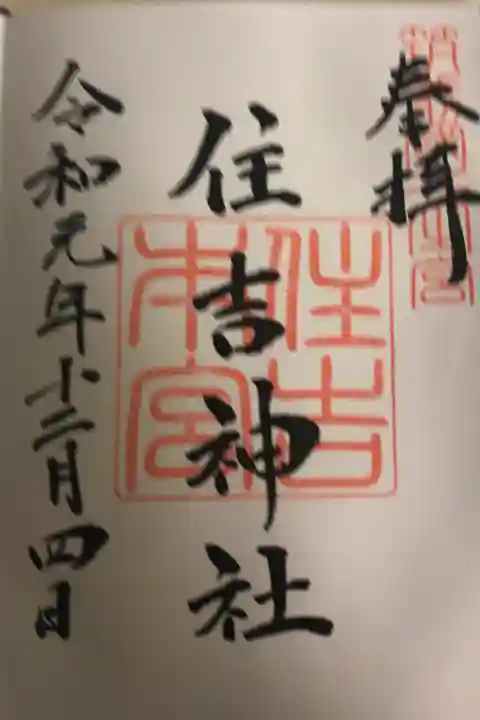 奉拝
住吉神社
住吉
本宮
令和元年十二月四日